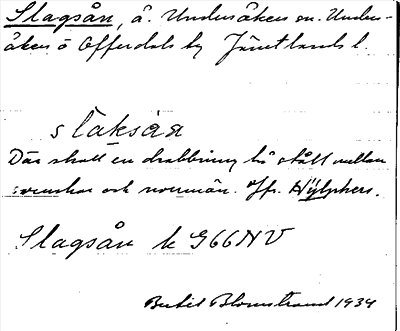 Slagsån, å. Undersåkers sn. Unders-
åkers o Offerdals tg Jämtlands l.
slaksaɴ
Där skall en drabbning ha stått mellan
svenskar och norrmän. Jfr.
Slagsån k G66NV
Bertil Blomstrand 1934